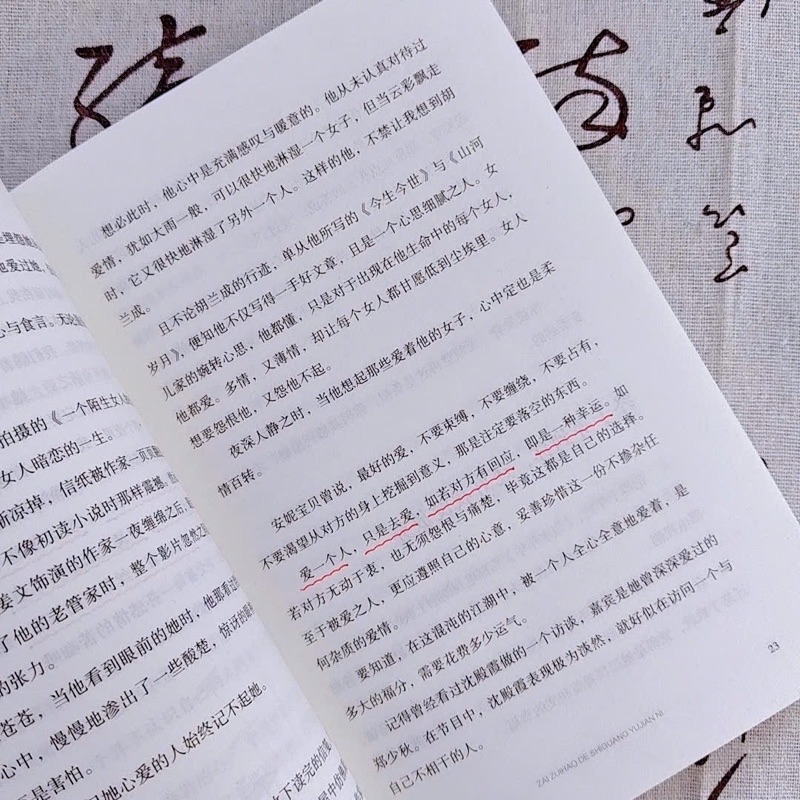 他爱过她
心与食言。无论
拍摄的《一个陌生女人
女人暗恋的一生。
渐凉掉，信纸被作家一页页翻
不像初读小说时那样震撼，
姜文饰演的作家一夜缠绵之后，
了他的老管家时，整个影片忽然之
的张力。
苍苍，当他看到眼前的她时，他那看过
心中，慢慢地渗出了一些酸楚，惊讶的眼
她心爱的人始终记不起她。
是害怕。
想必此时，他心中是充满感叹与暖意的。他从未认真对待过
爱情，犹如大雨一般，可以很快地淋湿一个女子，但当云彩飘走
时，它又很快地淋湿了另外一个人。这样的他，不禁让我想到胡
兰成。
且不论胡兰成的行迹，单从他所写的《今生今世》与《山河
岁月》，便知他不仅写得一手好文章，且是一个心思细腻之人。女
儿家的婉转心思，他都懂，只是对于出现在他生命中的每个女人，
他都爱。多情，又薄情，却让每个女人都甘愿低到尘埃里。女人
想要怨恨他，又怨他不起。
夜深人静之时，当他想起那些爱着他的女子，心中定也是柔
情百转。
安妮宝贝曾说，最好的爱，不要束缚，不要缠绕，不要占有，
不要渴望从对方的身上挖掘到意义，那是注定要落空的东西。
爱一个人，只是去爱，如若对方有回应，即是一种幸运。如
若对方无动于衷，也无须怨恨与痛楚，毕竟这都是自己的选择。
至于被爱之人，更应遵照自己的心意，妥善珍惜这一份不掺杂任
何杂质的爱情。
要知道，在这混沌的江湖中，被一个人全心全意地爱着，是
多大的福分，需要花费多少运气。
记得曾经看过沈殿霞做的一个访谈，嘉宾是她曾深深爱过的
郑少秋。在节目中，沈殿霞表现极为淡然，就好似在访问一个与
自己不相干的人。
23
ZAI ZUIHAO DE SHIGUANG YUJIAN NI